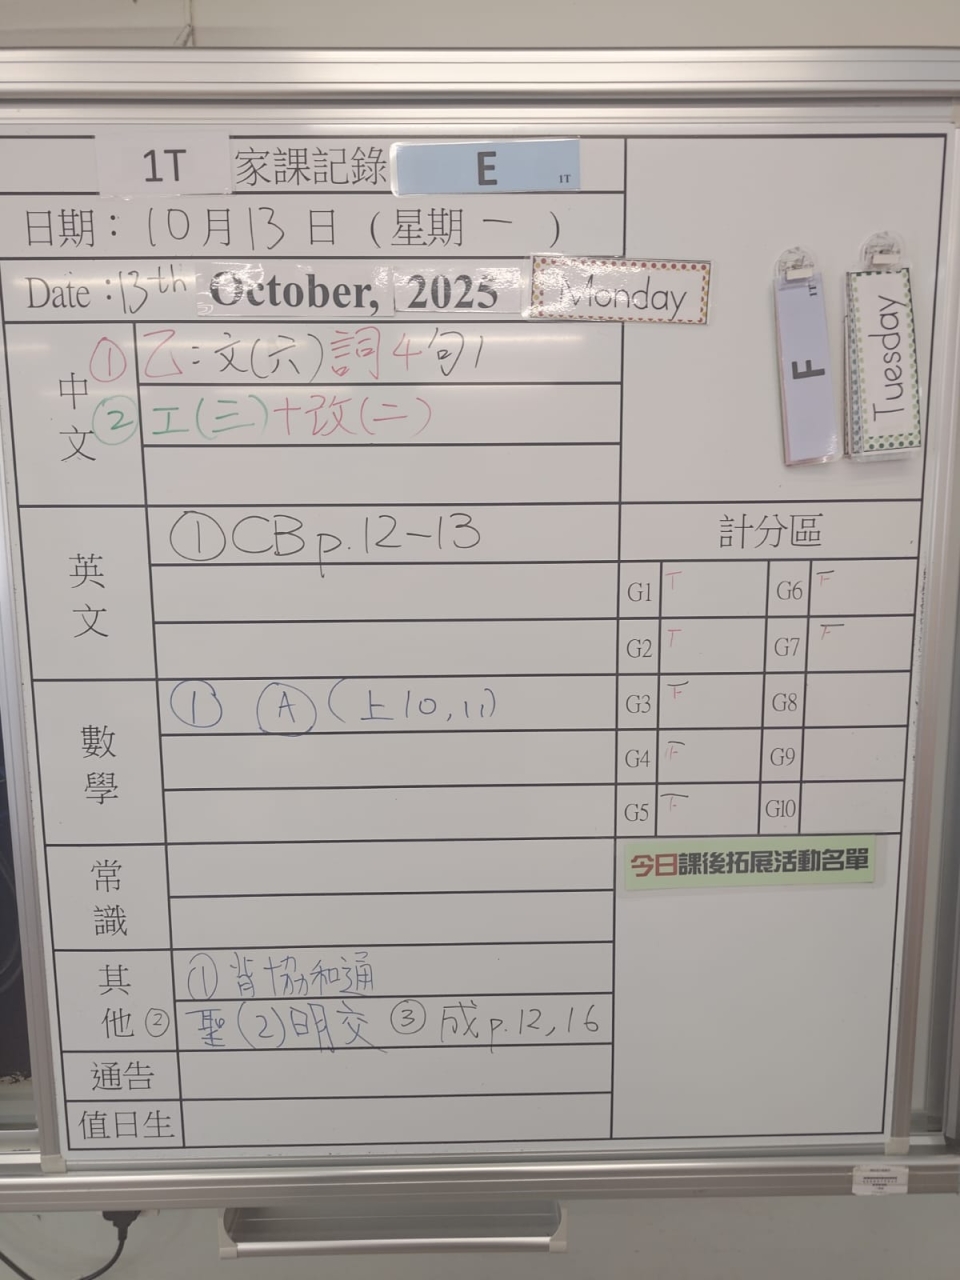 1T 家課記錄 E 1T
日期：10月13日（星期一）
Date : 13th October, 2025 Monday
F 1T
Tuesday
中文
① 乙：文(六)詞4句1
② 工(三)+改(二)
英文
① CB p.12-13
數學
① Ⓐ (上10,11)
常識
其他
① 背協和通
② 聖(2)明交 ③ 成p.12,16
通告
值日生
計分區
G1 T G6 F
G2 T G7 F
G3 F G8
G4 F G9
G5 F G10
今日課後拓展活動名單